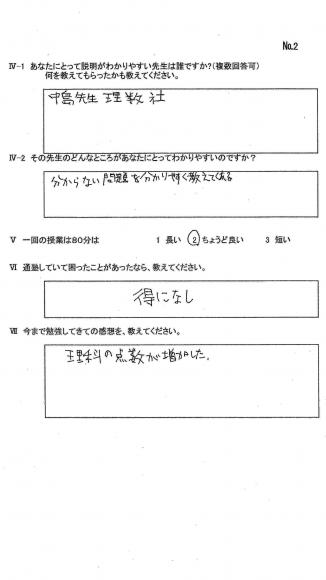 No.2
Ⅳ-1 あなたにとって説明がわかりやすい先生は誰ですか?(複数回答可)
何を教えてもらったかも教えてください。
中島先生 理 数 社
Ⅳ-2 その先生のどんなところがあなたにとってわかりやすいのですか?
分からない問題を分かりやすく教えてくれる
Ⅴ 一回の授業は80分は 1 長い 2 ちょうど良い 3 短い
Ⅵ 通塾していて困ったことがあったなら、教えてください。
得になし
Ⅶ 今まで勉強してきての感想を、教えてください。
理科の点数が増加した。